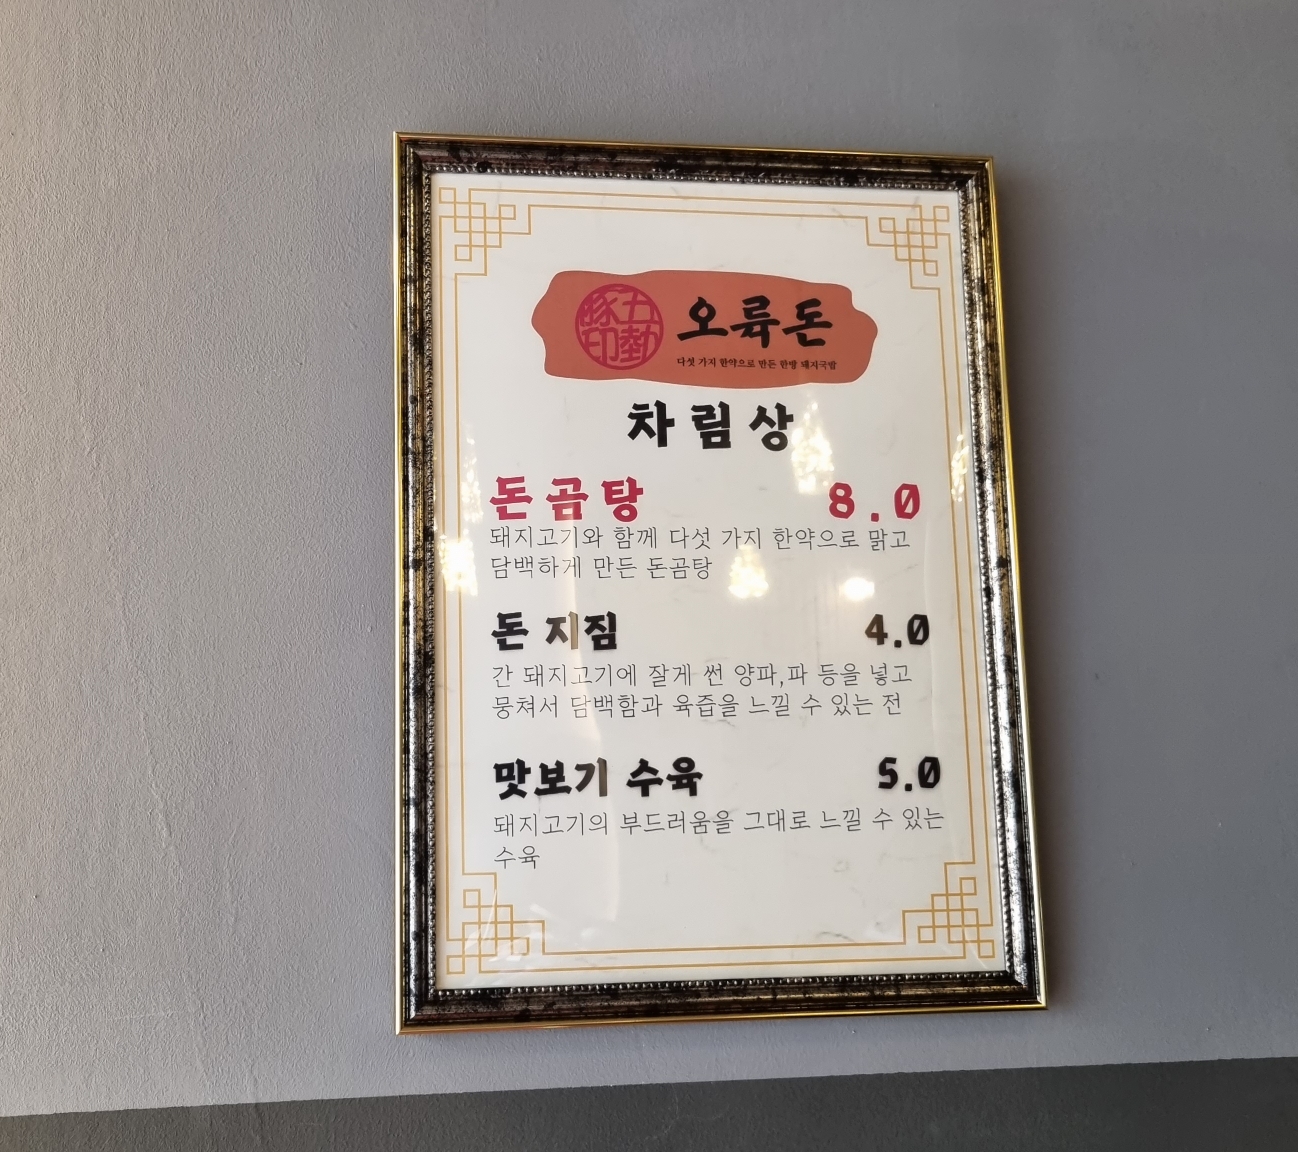 오륙돈
다섯 가지 한약으로 만든 한방 돼지국밥
차림상
돈곰탕 8.0
돼지고기와 함께 다섯 가지 한약으로 맑고
담백하게 만든 돈곰탕
돈 지짐 4.0
간 돼지고기에 잘게 썬 양파,파 등을 넣고
뭉쳐서 담백함과 육즙을 느낄 수 있는 전
맛보기 수육 5.0
돼지고기의 부드러움을 그대로 느낄 수 있는
수육